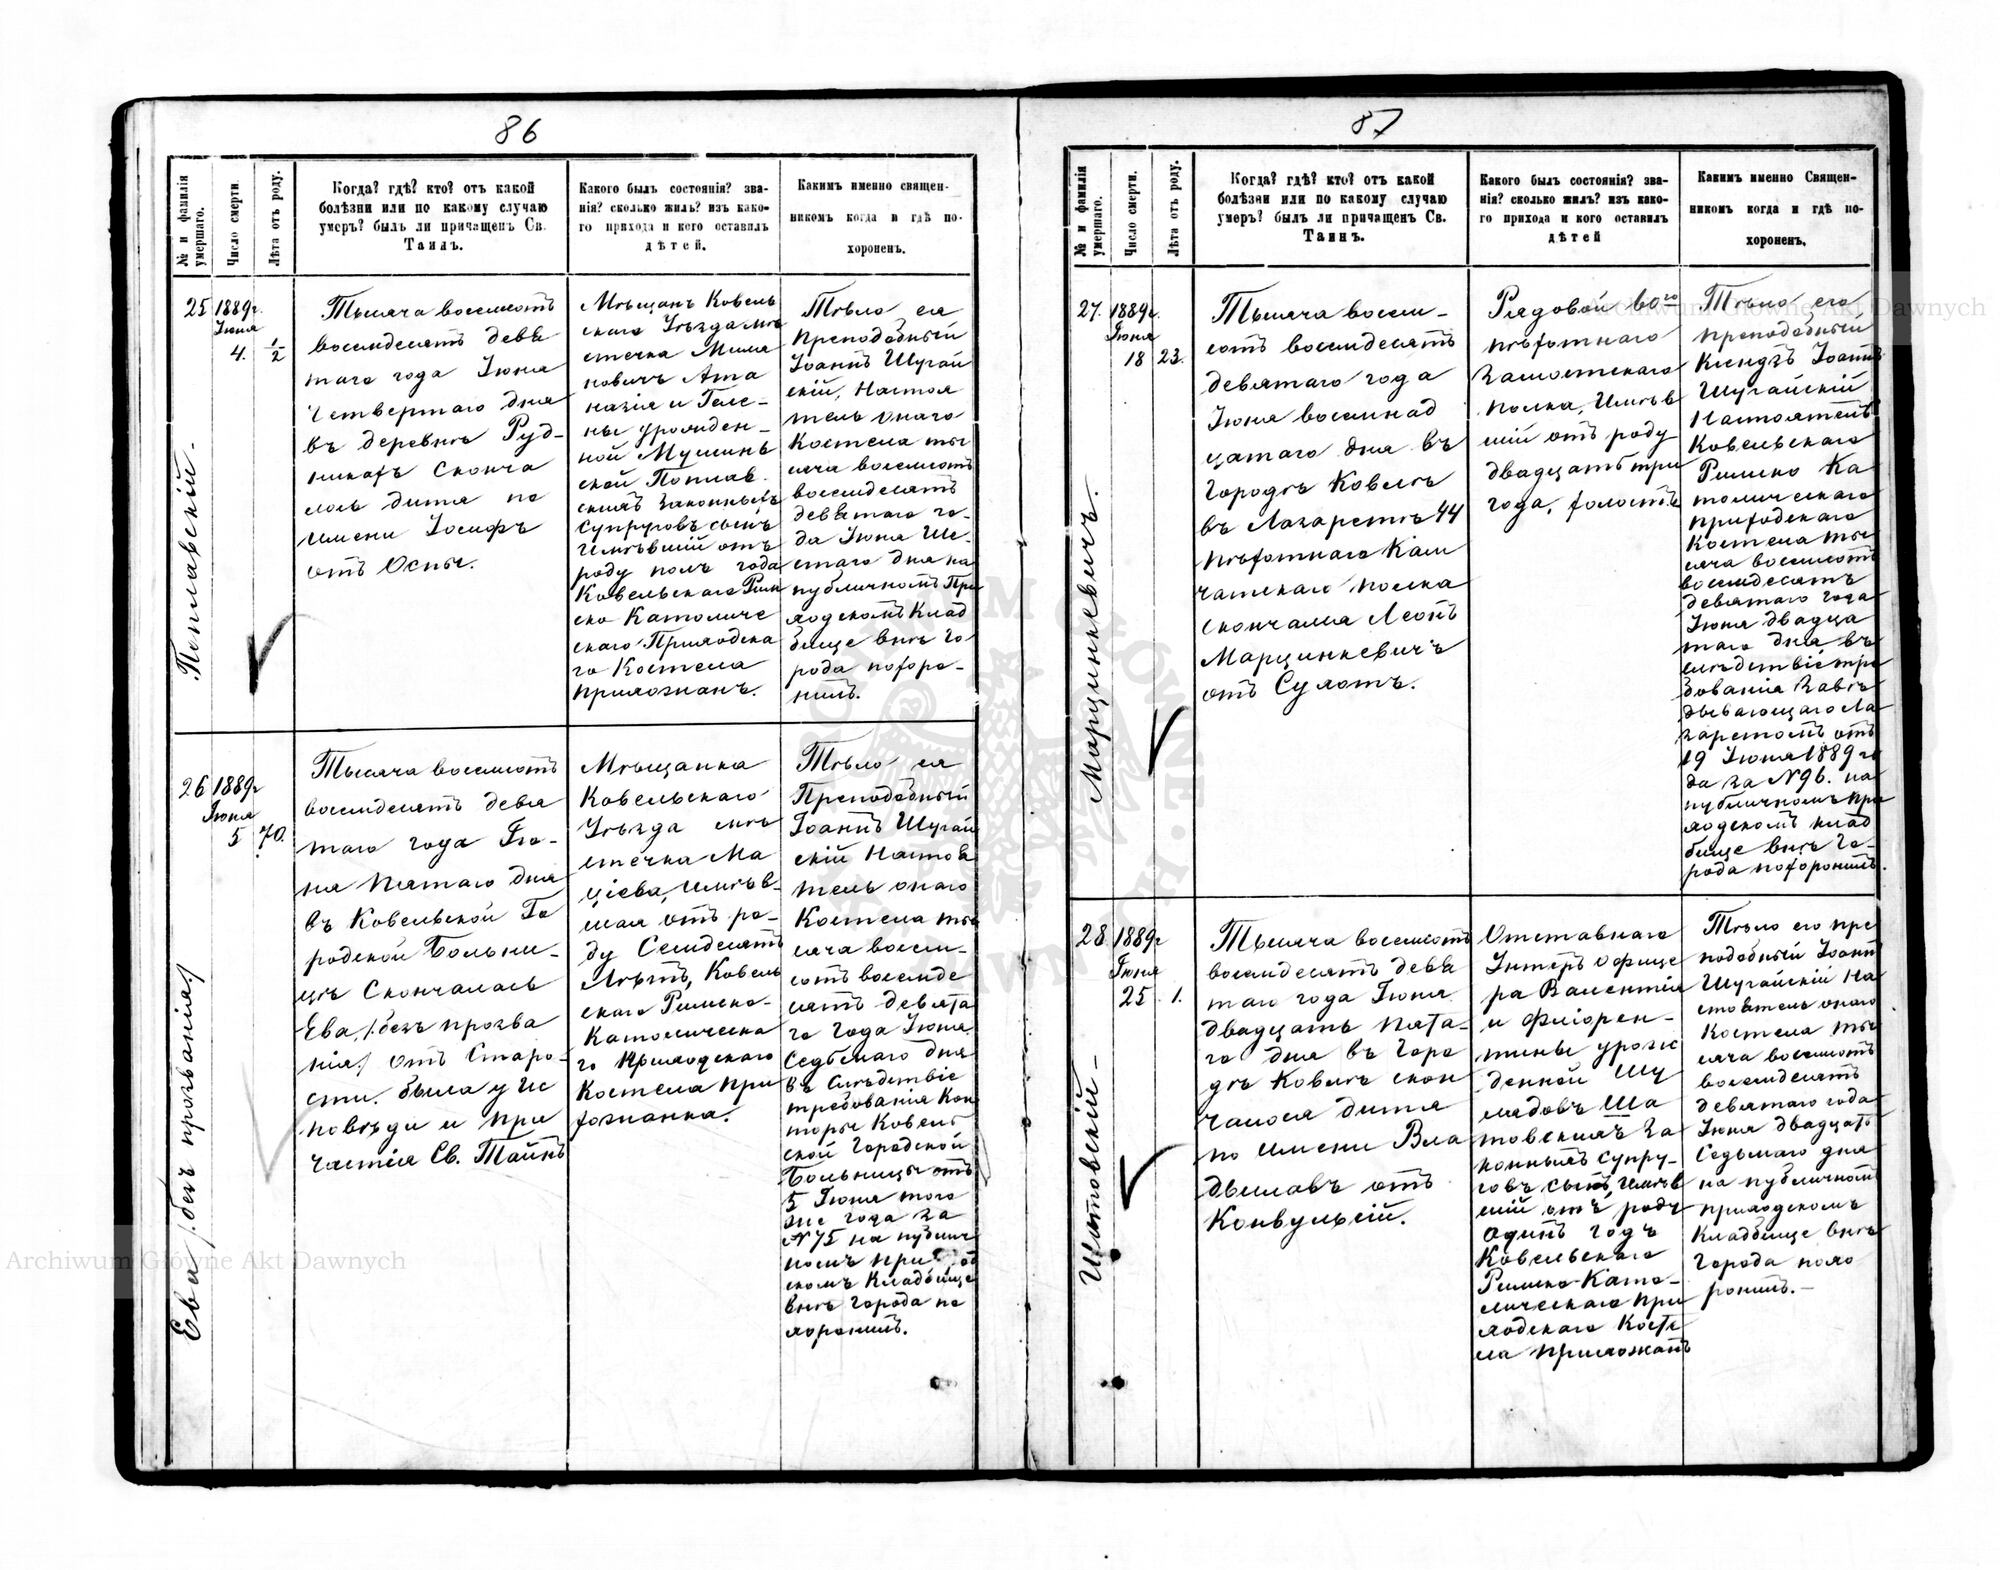 86
№ и фамилія умершаго.
Число смерти.
Лѣта отъ роду.
Когда? гдѣ? кто? отъ какой
болѣзни или по какому случаю
умеръ? былъ ли причащенъ Св.
Таинъ.
Какого былъ состоянія? зва-
нія? сколько жилъ? изъ како-
го прихода и кого оставилъ
дѣтей.
Какимъ именно священ-
никомъ когда и гдѣ по-
хороненъ.
25
Поплавскій.
1889г.
Іюня
4.
1/2
Тысяча восемьсотъ
восемдесятъ девя
таго года Іюня
четвертаго дня
въ деревнѣ Руд-
никахъ сконча
лось дитя по
имени Іосифъ
отъ Оспы.
Мѣщанъ Ковель
скаго Уѣзда мѣ
стечка Миля
новичъ Ата
назія и Геле-
ны урожден-
ной
ской Поплав
скихъ законныхъ
супруговъ сынъ
имѣвшій отъ
роду полъ года
Ковельскаго Рим
ско Католиче
скаго Приходска
го Костела
прихожанъ.
Тѣло ея
преподобный
Іоаннъ Шугай
скій, Настоя
тель онаго
Костела ты
сяча восемьсотъ
восемдесятъ
девятаго го-
да Іюня Ше-
стаго дня на
публичномъ При
ходскомъ Клад
бище внѣ го
рода похоро-
нилъ.
26
Ева /:безъ прозванія/
1889г
Іюня
5
70.
Тысяча восемьсотъ
восемдесятъ девя
таго года Ію-
ня пятаго дня
въ Ковельской Го
родской Больни-
цѣ скончалась
Ева, /:безъ прозва
нія/ отъ Старо-
сти. была у Ис
повѣди и при
частія Св. Таинъ
Мѣщанка
Ковельскаго
Уѣзда мѣ
стечка Ма
ціева, имѣв-
шая отъ ро-
ду Семдесятъ
Лѣтъ, Ковель
скаго Римско-
Католическа
го Приходскаго
Костела при
хожанка.
Тѣло ея
Преподобный
Іоаннъ Шугай
скій Настоя
тель онаго
Костела ты
сяча восем-
сотъ восемде
сятъ девята
го года Іюня
Седьмаго дня
въ слѣдствіе
требованія Кон
торы Ковель
ской Городской
Больницы отъ
5 Іюня того
же года за
№75 на публич
номъ приход
скомъ Кладбище
внѣ города по
хоронилъ.
87
№ и фамилія умершаго.
Число смерти.
Лѣта отъ роду.
Когда? гдѣ? кто? отъ какой
болѣзни или по какому случаю
умеръ? былъ ли причащенъ Св.
Таинъ.
Какого былъ состоянія? зва-
нія? сколько жилъ? изъ како-
го прихода и кого оставилъ
дѣтей
Какимъ именно Священ-
никомъ когда и гдѣ по-
хороненъ.
27.
Марцинкевичъ.
1889г.
Іюня
18
23.
Тысяча восем-
сотъ восемдесятъ
девятаго года
Іюня восемнад
цатаго дня въ
Городѣ Ковелѣ
въ Лазаретѣ 44
пѣхотнаго Кам
чатскаго полка
скончался Леонъ
Марцинкевичъ
отъ Сухотъ.
Рядовой
пѣхотнаго
Замостскаго
полка, Имѣв
шій отъ роду
двадцать три
года, холостъ
Тѣло его,
преподобный
Ксендзъ Іоаннъ
Шугайскій
Настоятель
Ковельскаго
Римско Ка
толическаго
приходскаго
Костела ты
сяча восемьсотъ
восемдесятъ
девятаго года
Іюня двадца
таго дня, въ
слѣдствіе тре
бованія Завѣ
дывающаго Ла
заретомъ отъ
19 Іюня 1889 го
да за №96. на
публичномъ при
ходскомъ клад
бище внѣ го-
рода похоронилъ.
28.
Шатовскій -
1889г
Іюня
25
1.
Тысяча восемьсотъ
восемдесятъ девя
таго года Іюня
двадцать пята-
го дня въ Горо
дѣ Ковелѣ скон
чалося дитя
по имени Вла
дыславъ отъ
Конвульсій.
Отставнаго
Унтеръ офице
ра Валентія
и Флiорен-
тины урож
денной Шу
лядовъ Ша
товскихъ за
конныхъ супру-
говъ сынъ, имѣв
шій отъ роду
одинъ годъ
Ковельскаго
Римско-Като-
лическаго при
ходскаго Косте
ла прихожанъ
Тѣло его пре
подобный Іоаннъ
Шугайскій На
стоятель онаго
Костела ты
сяча восемьсотъ
восемдесятъ
девятаго года
Іюня двадцать
Седьмаго дня
на публичномъ
приходскомъ
Кладбище внѣ
города похо
ронилъ. -
Archiwum Główne Akt Dawnych
Archiwum Główne Akt Dawnych